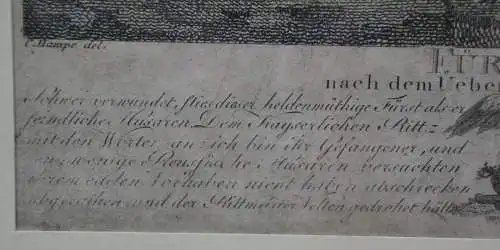 C. Hampe del.
FÜR
nach dem Uebe
Schwer verwundet, sties dieser heldenmüthige Fürst als er
feindliche Husaren. Dem Kayserlichen Ritt=
mit den Worten an: ich bin ihr Gefangener, und
wenige Husaren versuchten
ihrem edelen Vorhaben nicht haben abschrecken
und der Rittmeister Velten gedrohet hätt